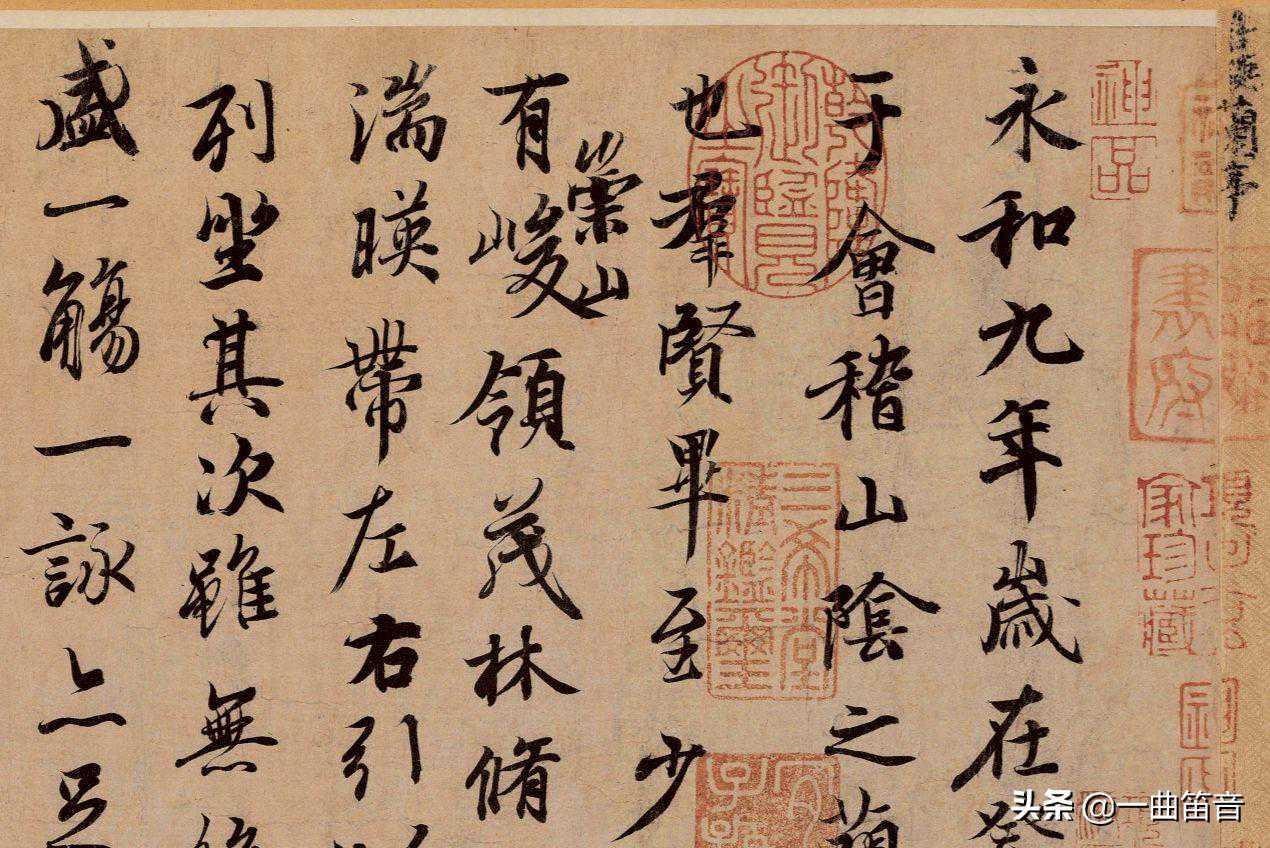 神品
三希堂精鑑璽
永和九年歲在癸
于會稽山陰之蘭
也羣賢畢至少
有崇山峻領茂林脩
湍暎帶左右引
列坐其次雖無
盛一觴一詠亦足
头条 @一曲笛音